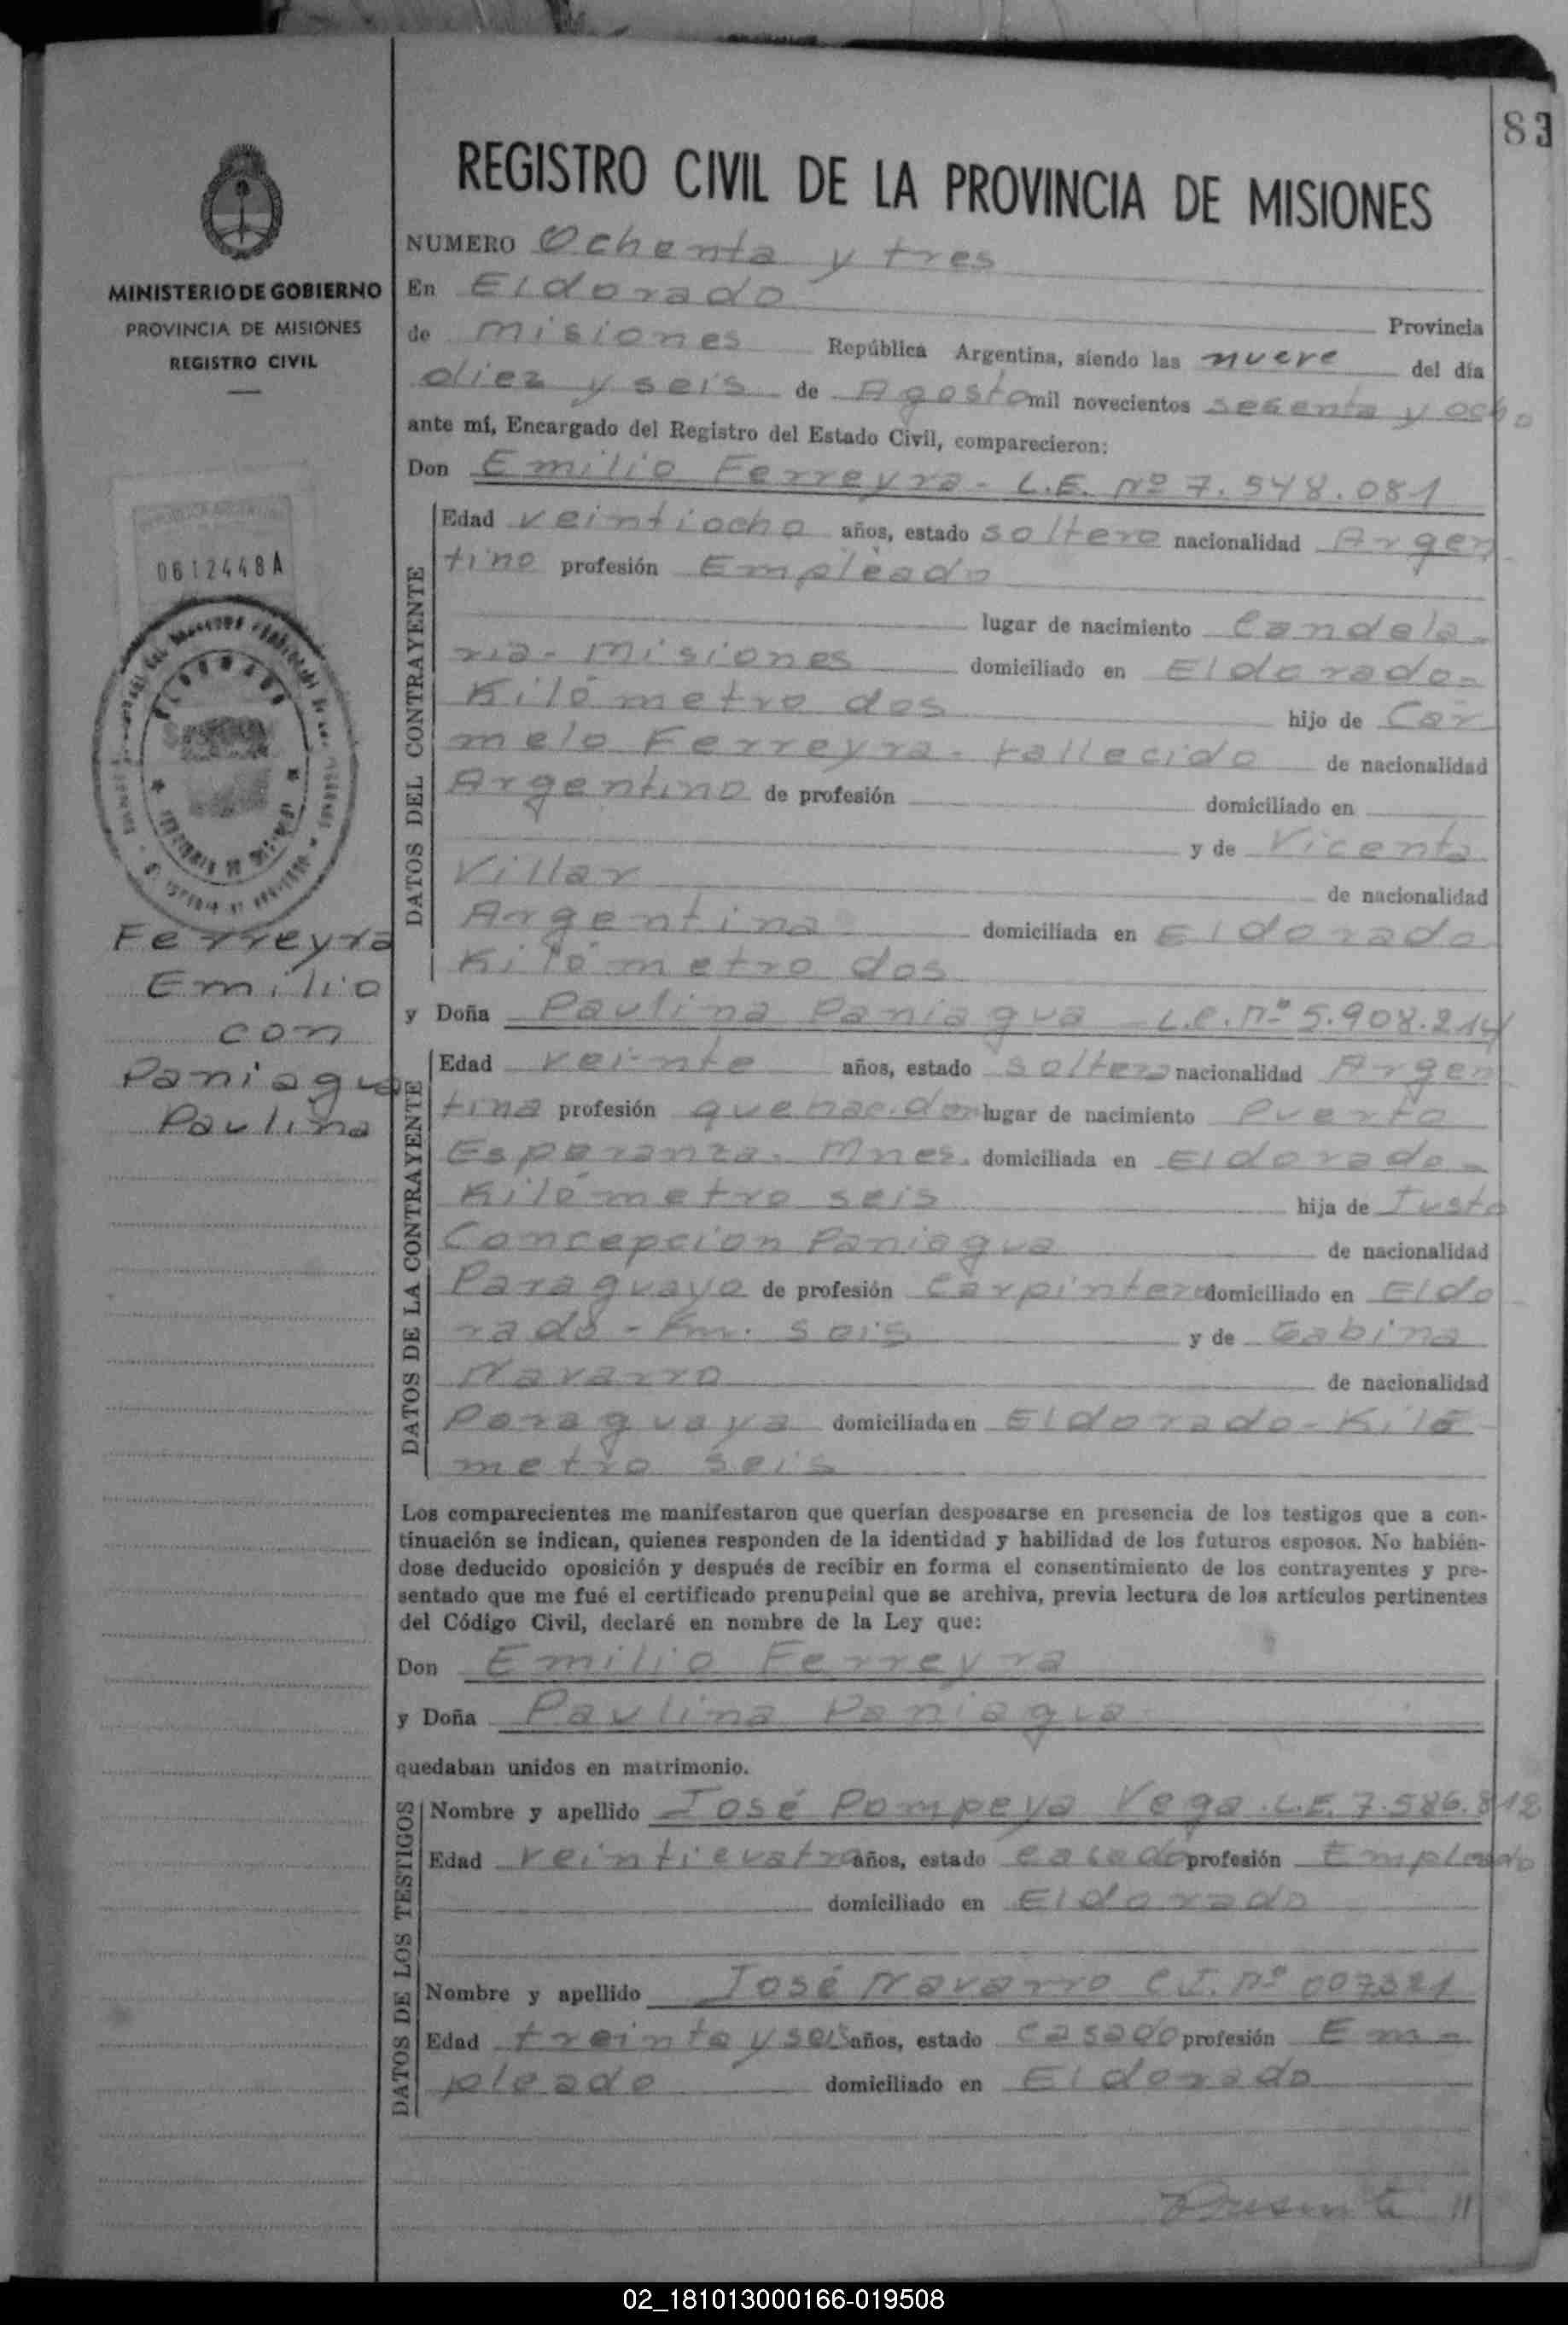 83
REGISTRO CIVIL DE LA PROVINCIA DE MISIONES
MINISTERIO DE GOBIERNO
PROVINCIA DE MISIONES
REGISTRO CIVIL
0612448A
Ferreyra
Emilio
con
Paniagua
Paulina
NUMERO Ochenta y tres
En Eldorado Provincia
de Misiones República Argentina, siendo las nueve del día
diez y seis de Agosto mil novecientos sesenta y ocho
ante mí, Encargado del Registro del Estado Civil, comparecieron:
Don Emilio Ferreyra - L.E. Nº 7.548.081
DATOS DEL CONTRAYENTE
Edad veintiocho años, estado soltero nacionalidad Argen
tino profesión Empleado
lugar de nacimiento Candela-
ria - Misiones domiciliado en Eldorado-
Kilómetro dos hijo de Car
melo Ferreyra - fallecido de nacionalidad
Argentino de profesión domiciliado en
y de Vicenta
Villar de nacionalidad
Argentina domiciliada en Eldorado
Kilómetro dos
y Doña Paulina Paniagua - L.C. nº 5.908.214
DATOS DE LA CONTRAYENTE
Edad veinte años, estado soltera nacionalidad Argen
tina profesión lugar de nacimiento Puerto
Esperanza. Mnes. domiciliada en Eldorado-
Kilómetro seis hija de Justo
Concepcion Paniagua de nacionalidad
Paraguayo de profesión Carpintero domiciliado en Eldo
rado - Km. seis y de Gabina
Navarro de nacionalidad
Paraguaya domiciliada en Eldorado - Kiló
metro seis
Los comparecientes me manifestaron que querían desposarse en presencia de los testigos que a con-
tinuación se indican, quienes responden de la identidad y habilidad de los futuros esposos. No habién-
dose deducido oposición y después de recibir en forma el consentimiento de los contrayentes y pre-
sentado que me fué el certificado prenupcial que se archiva, previa lectura de los artículos pertinentes
del Código Civil, declaré en nombre de la Ley que:
Don Emilio Ferreyra
y Doña Paulina Paniagua
quedaban unidos en matrimonio.
DATOS DE LOS TESTIGOS
Nombre y apellido José Pompeya Vega. L.E. 7.586.812
Edad veinticuatro años, estado casado profesión Empleado
domiciliado en Eldorado
Nombre y apellido José Navarro C.I. nº 007321
Edad treinta y seis años, estado casado profesión Em-
pleado domiciliado en Eldorado
02_181013000166-019508